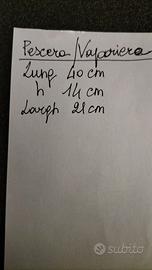 Pescera/Vaporiera
Lung 40 cm
h 14 cm
Largh 21 cm
subito